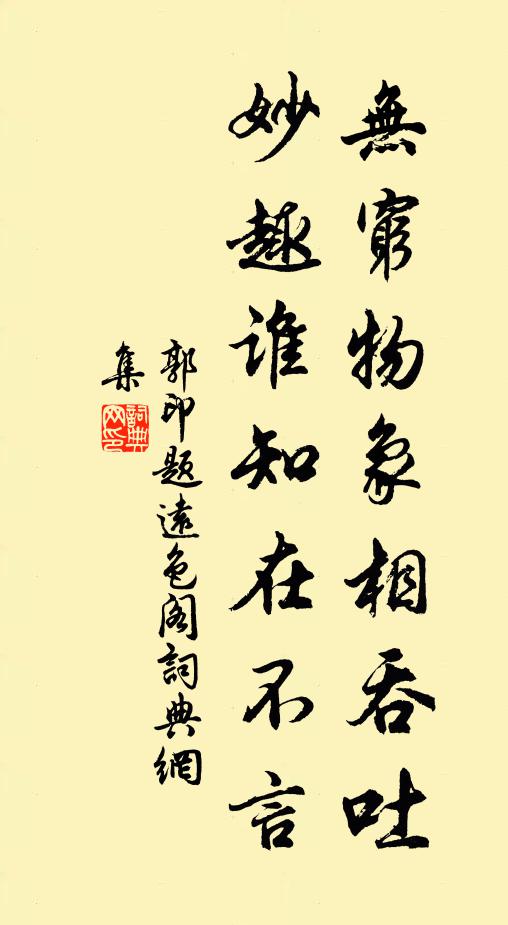 無窮物象相吞吐
妙趣誰知在不言
郭印題遠色阁詞典網
集
詞典
网印